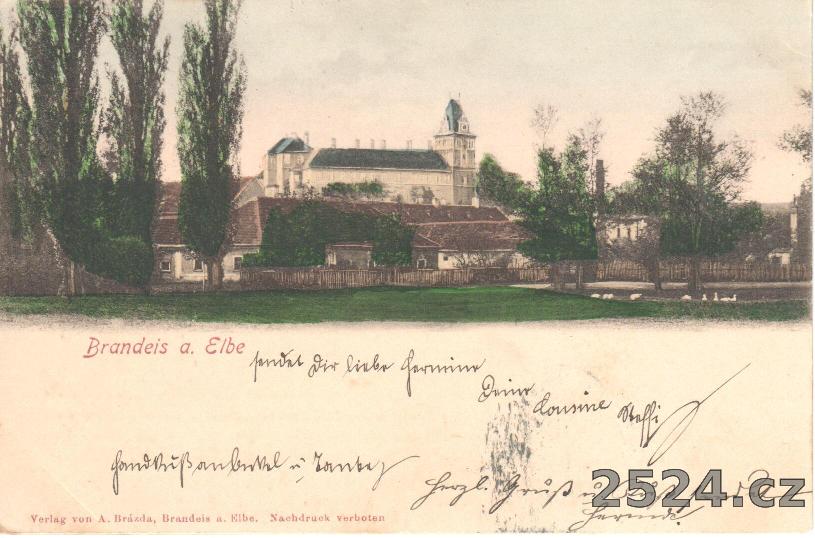 Brandeis a. Elbe
sendet Dir liebe Hermine
Deine
Cousine Steffi
Handkuß an Onkel u. Tante
Herzl. Gruß u.
2524.cz
Verlag von A. Brázda, Brandeis a. Elbe. Nachdruck verboten